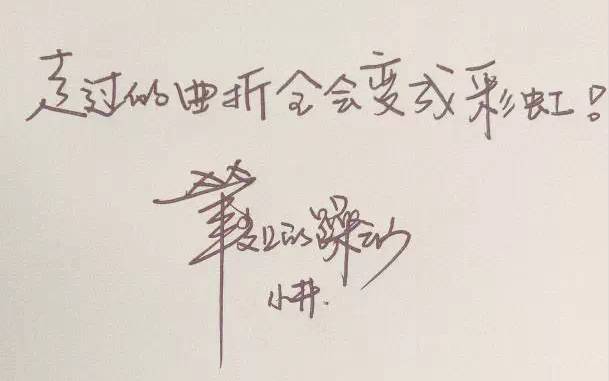 走过的曲折全会变成彩虹！
的躁动
小井.